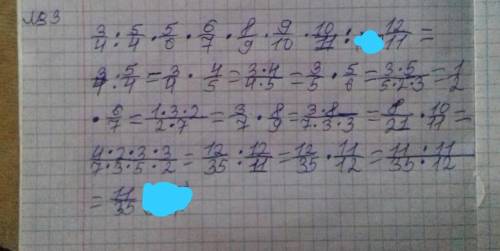 №3
3/4 : 5/4 · 5/6 · 6/7 · 8/9 · 9/10 · 10/11 : 12/11 =
3/4 · 5/4 = 3/4 · 4/5 = 3·4/4·5 = 3/5 · 5/6 = 3·5/5·2·3 = 1/2
· 6/7 = 1·3·2/2·7 = 3/7 · 8/9 = 3·8/7·3·3 = 8/21 · 10/11 =
4·2·3·3/7·3·5·2 = 12/35 · 12/11 = 12/35 · 11/12 = 11/35 · 11/12
= 11/35